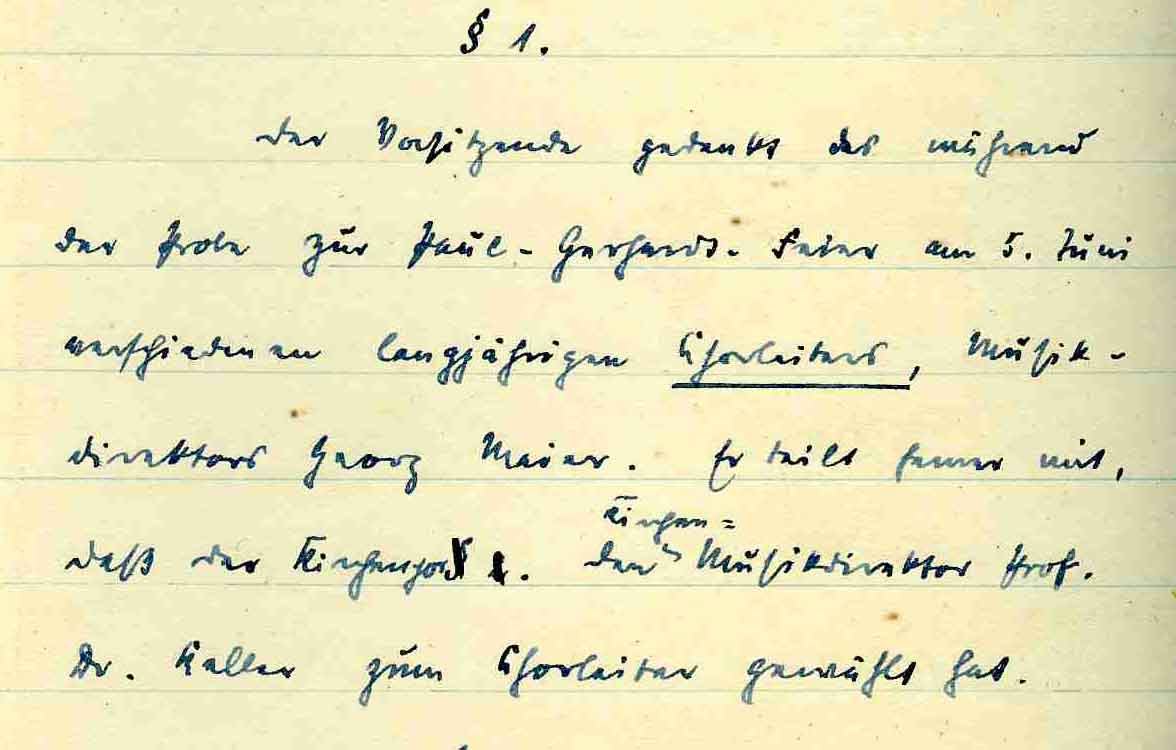 § 1.
Der Vorsitzende gedenkt des während
der Probe zur Paul-Gerhardt-Feier am 5. Juni
verschiedenen langjährigen Chorleiters, Musik-
direktors Georg Maier. Er teilt ferner mit,
Kirchen=
daß der Kirchenchor den Musikdirektor Prof.
Dr. Keller zum Chorleiter gewählt hat.